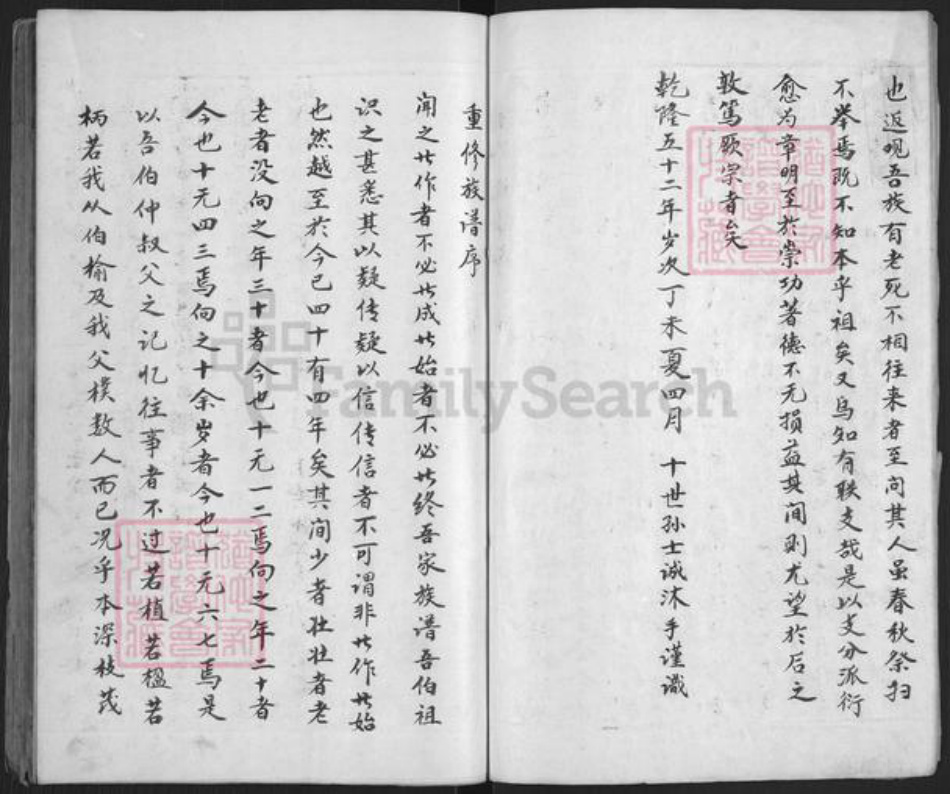 也返观吾族有老死不相往来者至问其人虽春秋祭扫
不举焉既不知本乎祖矣又乌知有联支哉是以支分派衍
愈为章明至於崇功著德不无损益其间则尤望於后之
敦笃厥宗者矣
乾隆五十二年岁次丁未夏四月 十世孙士诚沐手谨识
重修族谱序
闻之 作者不必 成 始者不必 终吾家族谱吾伯祖
识之甚悉其以疑传疑以信传信者不可谓非 作 始
也然越至於今已四十有四年矣其间少者壮壮者老
老者没向之年三十者今也十无一二焉向之年二十者
今也十无四三焉向之十余岁者今也十无六七焉是
以吾伯仲叔父之记忆往事者不过若植若楹若
柄若我从伯榆及我父朴数人而已况乎本深枝茂
FamilySearch